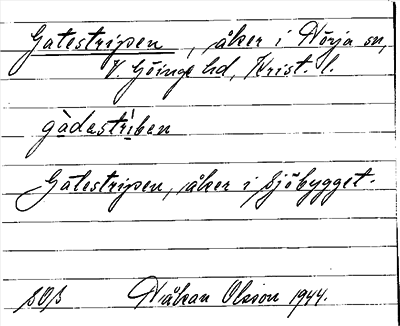 Gatestripen, åker i Nörja sn,
V. Göinge hd, Krist. l.
gàdestri̍ben
Gatestripen, åker i Sjöbygget.
SOß Håkan Olsson 1944.